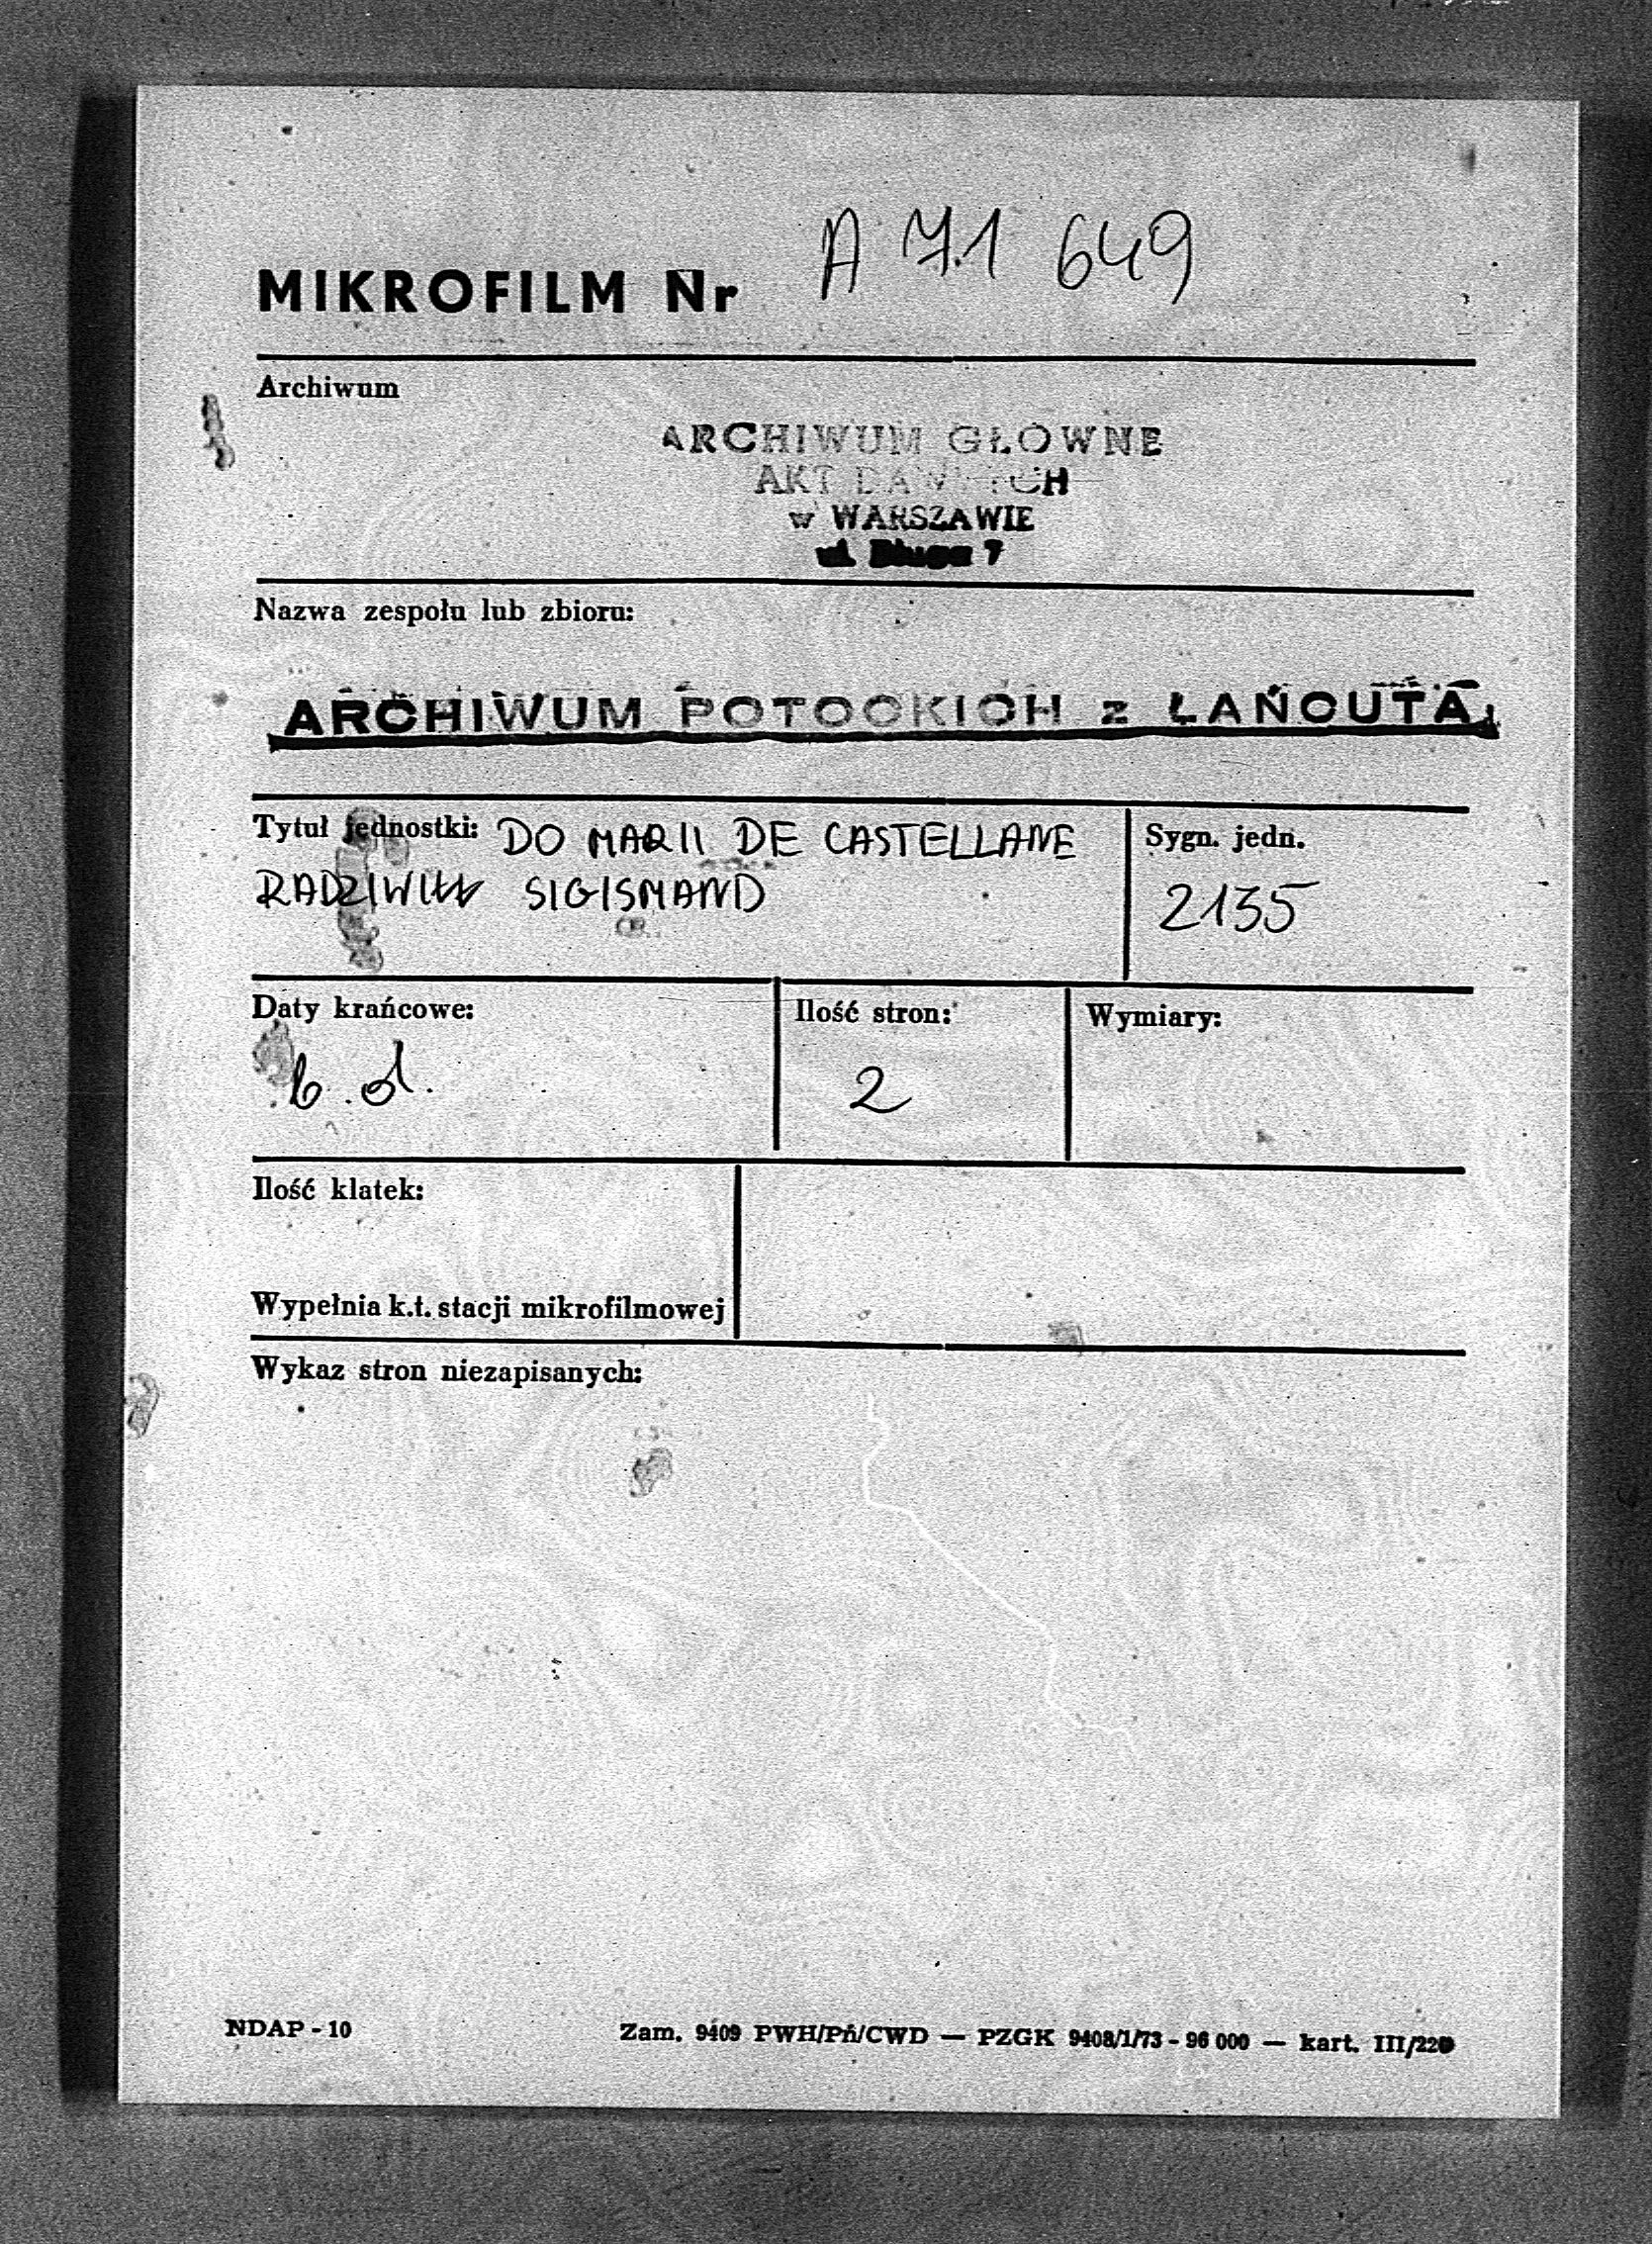 MIKROFILM Nr A 71 649
Archiwum
ARCHIWUM GŁOWNE
AKT DAWNYCH
w WARSZAWIE
ul. Długa 7
Nazwa zespołu lub zbioru:
ARCHIWUM POTOCKICH z ŁAŃCUTA
Tytuł jednostki: DO MARII DE CASTELLANE
RADZIWIŁŁ SIGISMAND
Sygn. jedn.
2135
Daty krańcowe:
b.d.
Ilość stron:
2
Wymiary:
Ilość klatek:
Wypełnia k.t. stacji mikrofilmowej
Wykaz stron niezapisanych:
NDAP - 10
Zam. 9409 PWH/Pń/CWD — PZGK 9408/1/73 - 96 000 — kart. III/220